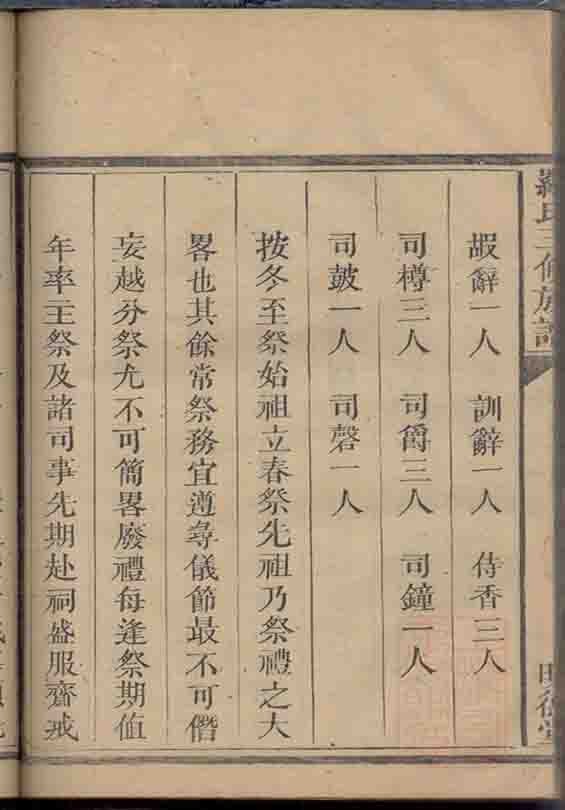 羅氏三修族譜
嘏辭一人　訓辭一人　侍香三人
司樽三人　司爵三人　司鐘一人
司鼓一人　司磬一人
按冬至祭始祖立春祭先祖乃祭禮之大
畧也其餘常祭務宜遵尋儀節最不可僭
妄越分祭尤不可簡畧廢禮每逢祭期值
年率主祭及諸司事先期赴祠盛服齋戒